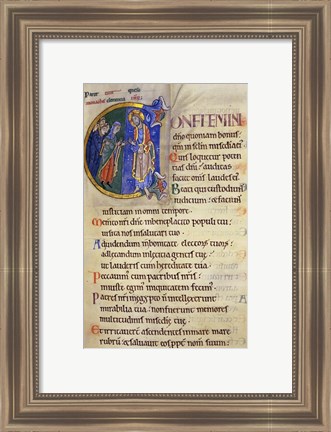 ONFITEMINI
dño quoniam bonus:
qm in sclm misericdia ei
Quis loquetur poten
tias dni: auditas
faciet omīs laudes ei
Beati qui custodiunt
iudicium: & faciunt
iusticiam in omni tempore.
Memento nri dñe inbeneplacito populi tui:
uisita nos insalutari tuo.
Aduidendum inbonitate electorū tuorū:
adletandum inleticia gentis tue:
ut lauderis cum hereditate tua.
Peccauim cum patribus nris:
iniuste egim iniquitatem fecim
Patres nri inegypto ñ intellexerunt
mirabilia tua: non fuerunt memores
multitudinis misedie tue.
Et irritauert ascendentes inmare mare
rubrū: & saluauit eos ppt nom suum: